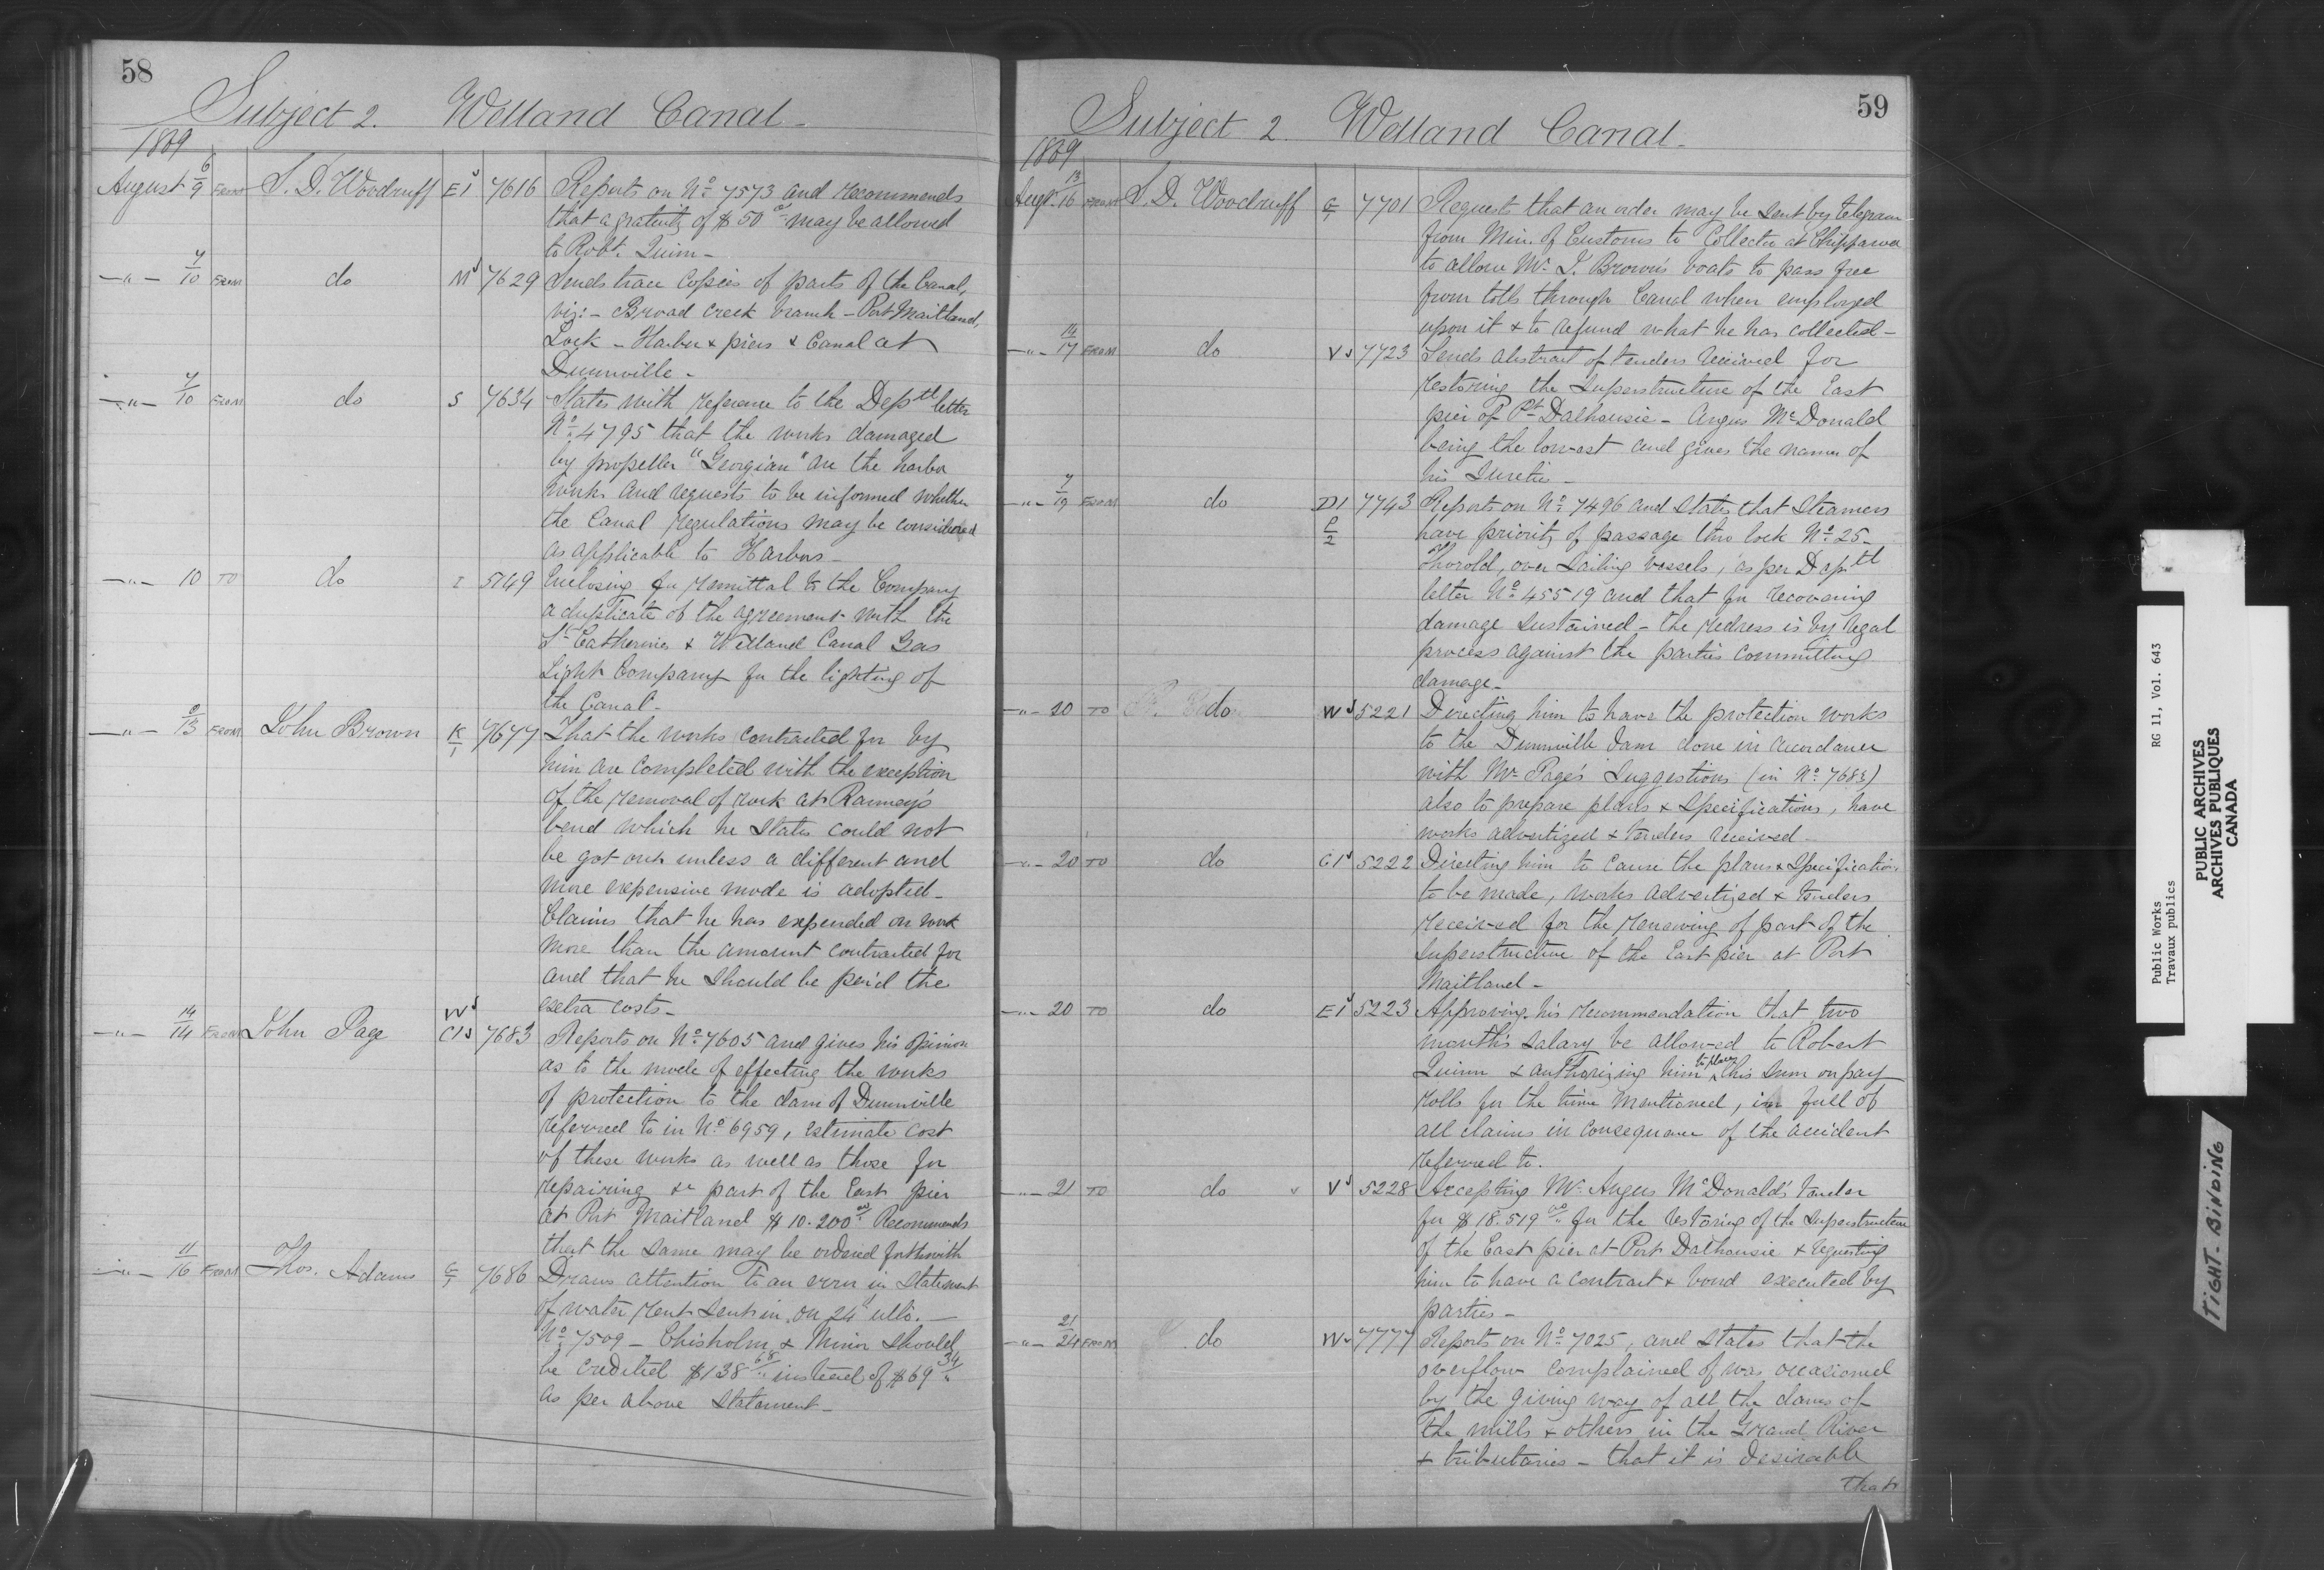 58
Subject 2. Welland Canal -
1869
August 6/9 FROM S. D. Woodruff E1 7616 Reports on No. 7573 and recommends
that a gratuity of $50 may be allowed
to Robt. Quinn -
-"- 7/10 FROM do M 7629 Sends trace copies of parts of the Canal,
viz: - Broad Creek branch - Port Maitland,
Lock - Harbor & piers & Canal at
Dunnville -
-"- 7/10 FROM do S 7634 States with reference to the Deptl letter
No. 4795 that the works damaged
by propeller "Georgian" are the harbor
works and requests to be informed whether
the Canal regulations may be considered
as applicable to Harbors -
-"- 10 TO do I 5149 Enclosing for remittal to the Company
a duplicate of the agreement with the
St. Catherines & Welland Canal Gas
Light Company for the lighting of
the Canal -
-"- 9/13 FROM John Brown K/1 7677 That the works contracted for by
him are completed with the exception
of the removal of rock at Ramey's
bend which he states could not
be got out unless a different and
more expensive mode is adopted -
Claims that he has expended on work
more than the amount contracted for
and that he should be paid the
extra costs -
-"- 14/14 FROM John Page W C1s 7683 Reports on No. 7605 and gives his opinion
as to the mode of effecting the works
of protection to the dam of Dunnville
referred to in No. 6959, estimate cost
of these works as well as those for
repairing &c part of the East pier
at Port Maitland $10.200 00 Recommends
that the same may be ordered forthwith
-"- 11/16 FROM Thos. Adams G/1 7686 Draws attention to an error in Statement
of water rent sent in on 24 ulto. -
No. 7509 - Chisholm & Minor should
be credited $138 68 instead of $69 34
as per above statement -
59
Subject 2. Welland Canal -
1869
Augt. 13/16 FROM S. D. Woodruff G/1 7701 Requests that an order may be sent by telegram
from Min. of Customs to Collector at Chippawa
to allow Mr. J. Brown's boats to pass free
from tolls through Canal when employed
upon it & to refund what he has collected -
-"- 14/17 FROM do Vs 7723 Sends abstract of tenders received for
restoring the Superstructure of the East
pier of Pt. Dalhousie - Angus McDonald
being the lowest and gives the names of
his Sureties -
-"- 7/19 FROM do D1 P/2 7743 Reports on No. 7496 and states that Steamers
have priority of passage thro lock No. 25 -
Thorold, over Sailing vessels, as per Deptl
letter No. 45519 and that for recovering
damage sustained - the redress is by legal
process against the parties committing
damage -
-"- 20 TO do W 5221 Directing him to have the protection works
to the Dunnville dam done in accordance
with Mr. Page's Suggestions (in No. 7683)
also to prepare plans & Specifications, have
works advertized & tenders received -
-"- 20 TO do C1 5222 Directing him to cause the plans & Specifications
to be made, works advertized & tenders
received for the renewing of part of the
superstructure of the East pier at Port
Maitland -
-"- 20 TO do E1 5223 Approving his recommendation that two
month's salary be allowed to Robert
Quinn & authorizing him to place this sum on pay
rolls for the time mentioned, in full of
all claims in consequence of the accident
referred to.
-"- 21 TO do V 5228 Accepting Mr. Angus McDonald's tender
for $18.519 00 for the restoring of the Superstructure
of the East pier at Port Dalhousie & requesting
him to have a contract & bond executed by
parties -
-"- 21/24 FROM do W 7777 Reports on No. 7025, and states that the
overflow complained of was occasioned
by the giving way of all the dams of
the mills & others in the Grand River
& tributaries - that it is desirable
that
Public Works RG 11, Vol. 643
Travaux publics
PUBLIC ARCHIVES
ARCHIVES PUBLIQUES
CANADA
TIGHT BINDING